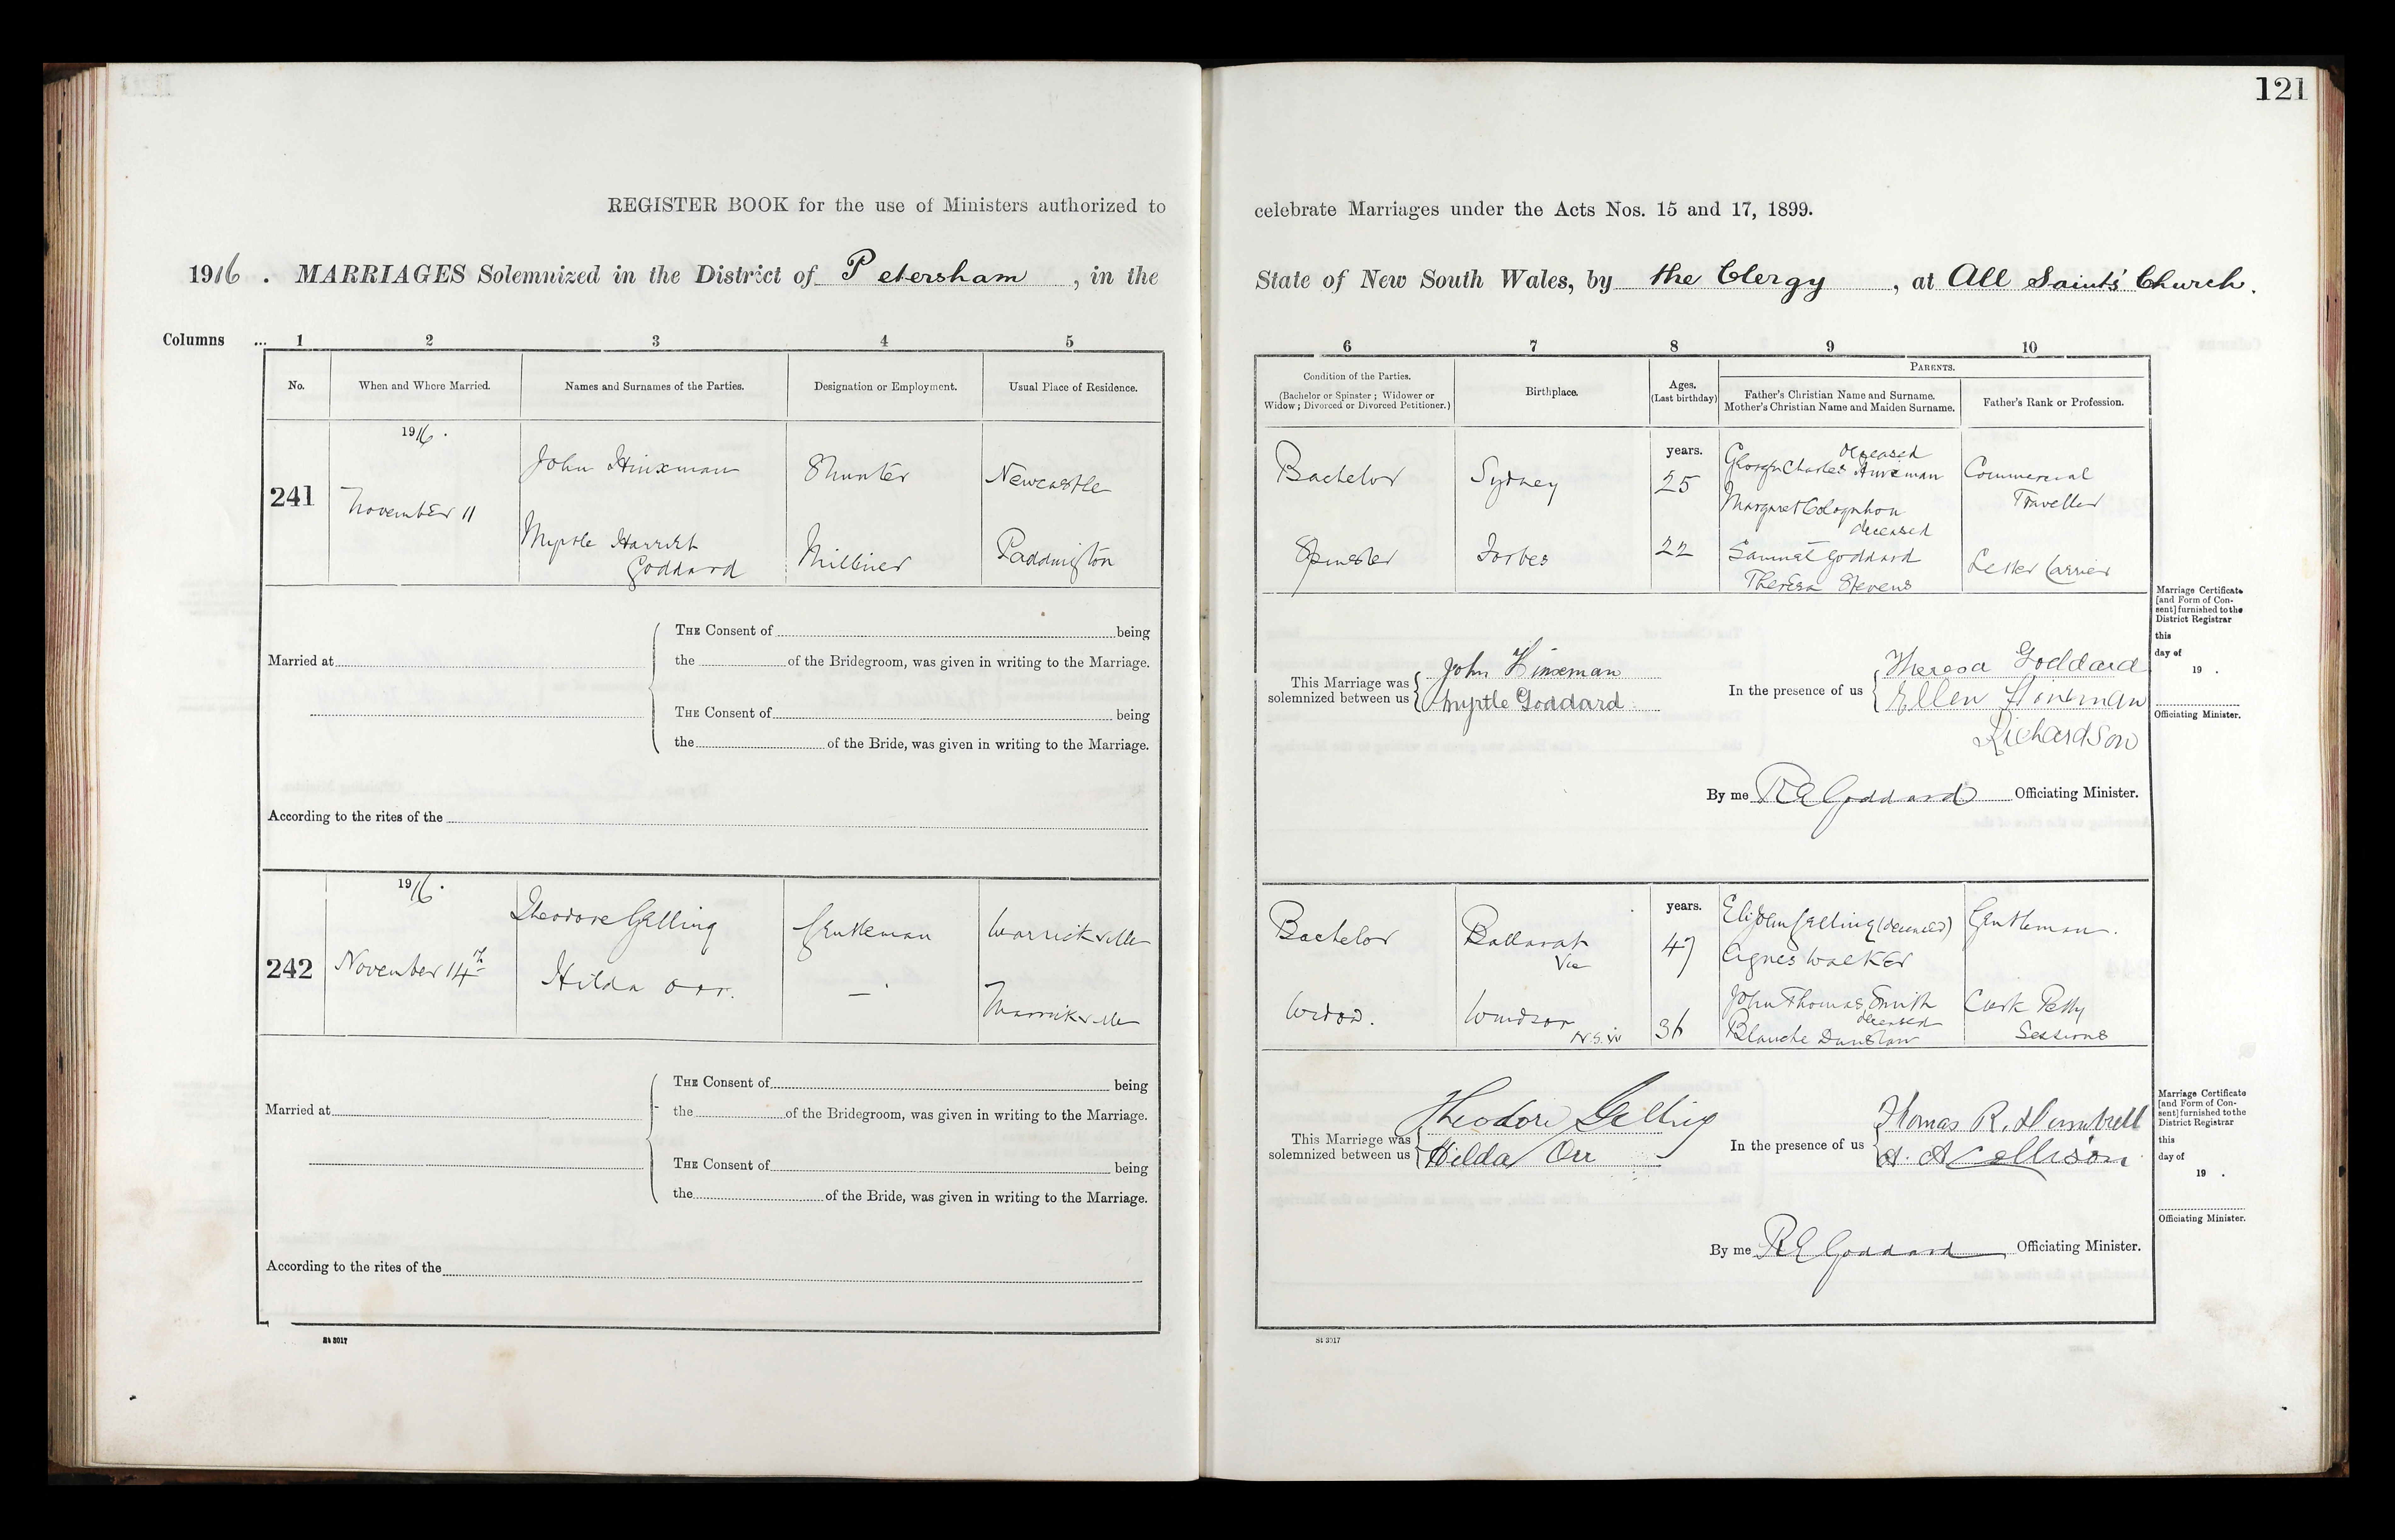 121
REGISTER BOOK for the use of Ministers authorized to
celebrate Marriages under the Acts Nos. 15 and 17, 1899.
1916. MARRIAGES Solemnized in the District of Petersham, in the
State of New South Wales, by the Clergy, at All Saints' Church.
Columns ... 1 2 3 4 5
6 7 8 9 10
No. When and Where Married. Names and Surnames of the Parties. Designation or Employment. Usual Place of Residence.
Condition of the Parties.
(Bachelor or Spinster; Widower or
Widow; Divorced or Divorced Petitioner.)
Birthplace.
Ages.
(Last birthday)
PARENTS.
Father's Christian Name and Surname.
Mother's Christian Name and Maiden Surname.
Father's Rank or Profession.
1916.
241
November 11
John Hinxman Shunter Newcastle
Myrtle Harriet
Goddard
Milliner Paddington
Bachelor Sydney
years.
25
deceased
George Charles Hinxman
Margaret
Commercial
Traveller
Spinster Forbes 22
deceased
Samuel Goddard
Theresa Stevens
Letter Carrier
Married at
THE Consent of being
the of the Bridegroom, was given in writing to the Marriage.
THE Consent of being
the of the Bride, was given in writing to the Marriage.
According to the rites of the
This Marriage was
solemnized between us
John Hinxman
Myrtle Goddard
In the presence of us
Theresa Goddard
Ellen Hinxman
Richardson
By me R E Goddard Officiating Minister.
Marriage Certificate
[and Form of Con-
sent] furnished to the
District Registrar
this
day of
19 .
Officiating Minister.
1916.
242
November 14th
Theodore Gelling Gentleman Marrickville
Hilda Orr. — Marrickville
Bachelor Ballarat
Vic
years.
47
Eli John Gelling (deceased)
Agnes Walker
Gentleman.
Widow. Windsor
N.S.W
36
John Thomas Smith
deceased
Blanche Dunstan
Clerk Petty
Sessions
Married at
THE Consent of being
the of the Bridegroom, was given in writing to the Marriage.
THE Consent of being
the of the Bride, was given in writing to the Marriage.
According to the rites of the
This Marriage was
solemnized between us
Theodore Gelling
Hilda Orr
In the presence of us
Thomas R. Dumbrell
A. A Collison
By me R E Goddard Officiating Minister.
Marriage Certificate
[and Form of Con-
sent] furnished to the
District Registrar
this
day of
19 .
Officiating Minister.
St 3017
St 3017